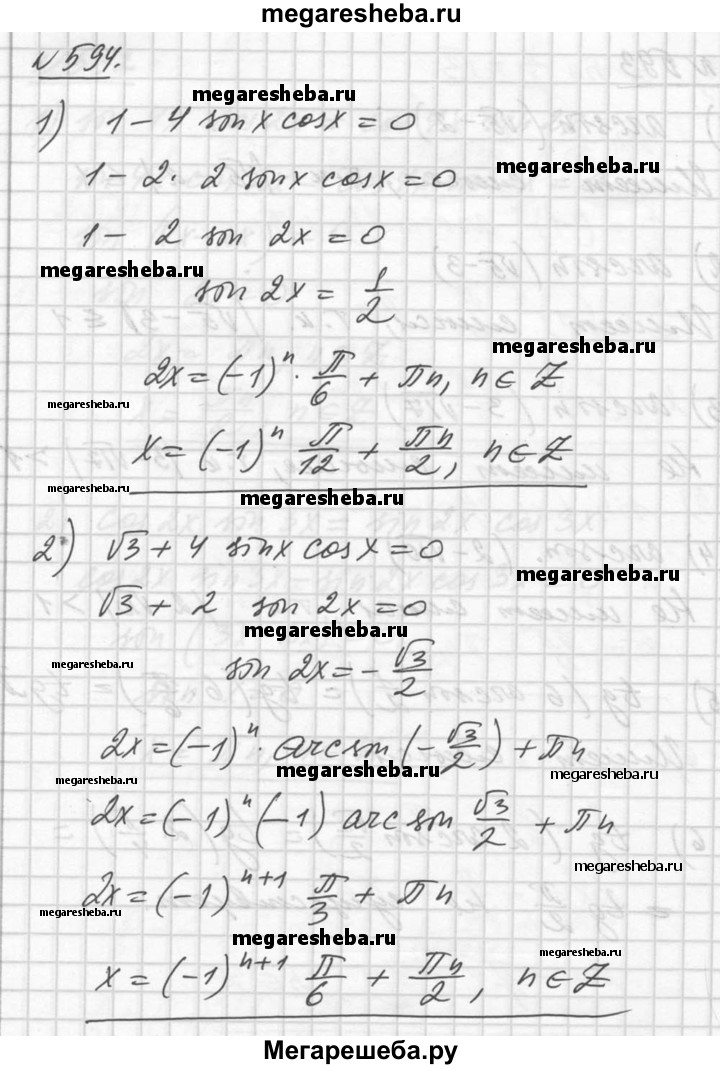 megaresheba.ru
№ 594.
megaresheba.ru
1) 1 - 4 sin x cos x = 0
megaresheba.ru
1 - 2 · 2 sin x cos x = 0
1 - 2 sin 2x = 0
megaresheba.ru
sin 2x = 1/2
megaresheba.ru
2x = (-1)^n · π/6 + πn, n ∈ Z
megaresheba.ru
x = (-1)^n π/12 + πn/2, n ∈ Z
megaresheba.ru
megaresheba.ru
2) √3 + 4 sin x cos x = 0
megaresheba.ru
√3 + 2 sin 2x = 0
megaresheba.ru
megaresheba.ru
sin 2x = - √3/2
2x = (-1)^n · arcsin (- √3/2) + πn
megaresheba.ru
megaresheba.ru
megaresheba.ru
2x = (-1)^n (-1) arc sin √3/2 + πn
megaresheba.ru
2x = (-1)^(n+1) π/3 + πn
megaresheba.ru
megaresheba.ru
megaresheba.ru
x = (-1)^(n+1) π/6 + πn/2, n ∈ Z
Мегарешеба.ру